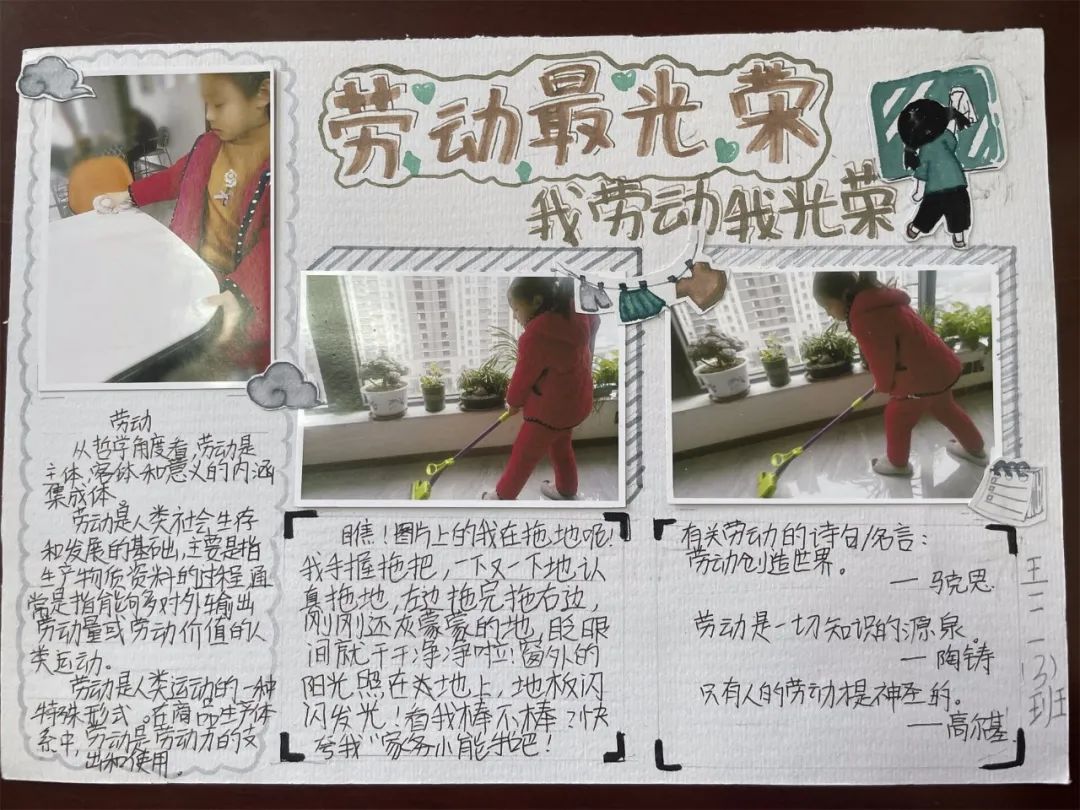 劳动最光荣
我劳动我光荣
劳动
从哲学角度看,劳动是
主体,客体和意义的内涵
集成体。
劳动是人类社会生存
和发展的基础,主要是指
生产物质资料的过程,通
常是指能够对外输出
劳动量或劳动价值的人
类运动。
劳动是人类运动的一种
特殊形式。在商品生产体
系中,劳动是劳动力的支
出和使用。
瞧!图片上的我在拖地呢!
我手握拖把,一下又一下地认
真拖地,左边拖完拖右边,
刚刚还灰蒙蒙的地,眨眼
间就干干净净啦!窗外的
阳光照在大地上,地板闪
闪发光!看我棒不棒?快
夸我"家务小能手"吧!
有关劳动的诗句/名言:
劳动创造世界。
— 马克思
劳动是一切知识的源泉。
— 陶铸
只有人的劳动才是神圣的。
—高尔基
(3)班